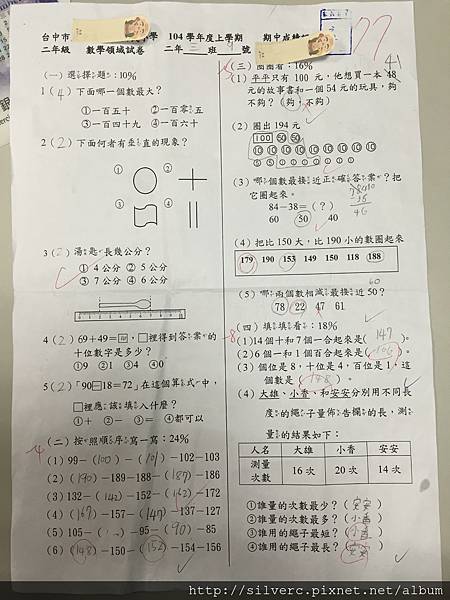 台中市
104 學年度上學期
期中成績
二年級 數學領域試卷 二年 班 號
77
(一) 選擇題：10%
1 (4) 下面哪一個數最大？
①一百五十 ②一百零五
③一百四十九 ④一百六十
2 (2) 下面何者有垂直的現象？
① ②
③ ④
3 (2) 湯匙長幾公分？
① 4 公分 ② 5 公分
③ 6 公分 ④ 7 公分
4 (2) 69+49=□，□裡得到答案的
十位數字是多少？
①9 ②1 ③4 ④0
5 (2)「90□18=72」在這個算式中，
□裡應該填入什麼？
①+ ②- ③= ④都可以
(二) 按照順序寫一寫：24%
(1) 99-(100)-(101)-102-103
(2) (190)-189-188-(187)-186
(3) 132-(142)-152-(162)-172
(4) (167)-157-(147)-137-127
(5) 105-( )-95-(90)-85
(6) (148)-150-(152)-154-156
(三) 圈圈看：16%
(1) 平平只有 100 元，他想買一本 48
元的故事書和一個 54 元的玩具，夠
不夠？(夠，不夠)
(2) 圈出 194 元
100 50 50
⑩⑩⑩⑩⑩⑩⑩⑩⑩
(3) 哪個數最接近正確答案？把
它圈起來。
84-38=(？)
46
60 50 40
(4) 把比 150 大，比 190 小的數圈起來
179 190 153 149 150 118 188
60
(5) 哪兩個數相減最接近 50？
78 22 47 61
(四) 填填看：18%
(1)14個十和7個一合起來是(147)。
(2)6個一和1個百合起來是(106)。
(3) 個位是 8，十位是 4，百位是 1，這
個數是(148)。
(4) 大雄、小香、和安安分別用不同長
度的繩子量佈告欄的長，測
量的結果如下：
人名 大雄 小香 安安
測量次數 16 次 20 次 14 次
①誰量的次數最少？(安安)
②誰量的次數最多？(小香)
③誰用的繩子最短？(小香)
④誰用的繩子最長？(安安)
http://silverc.pixnet.net/album